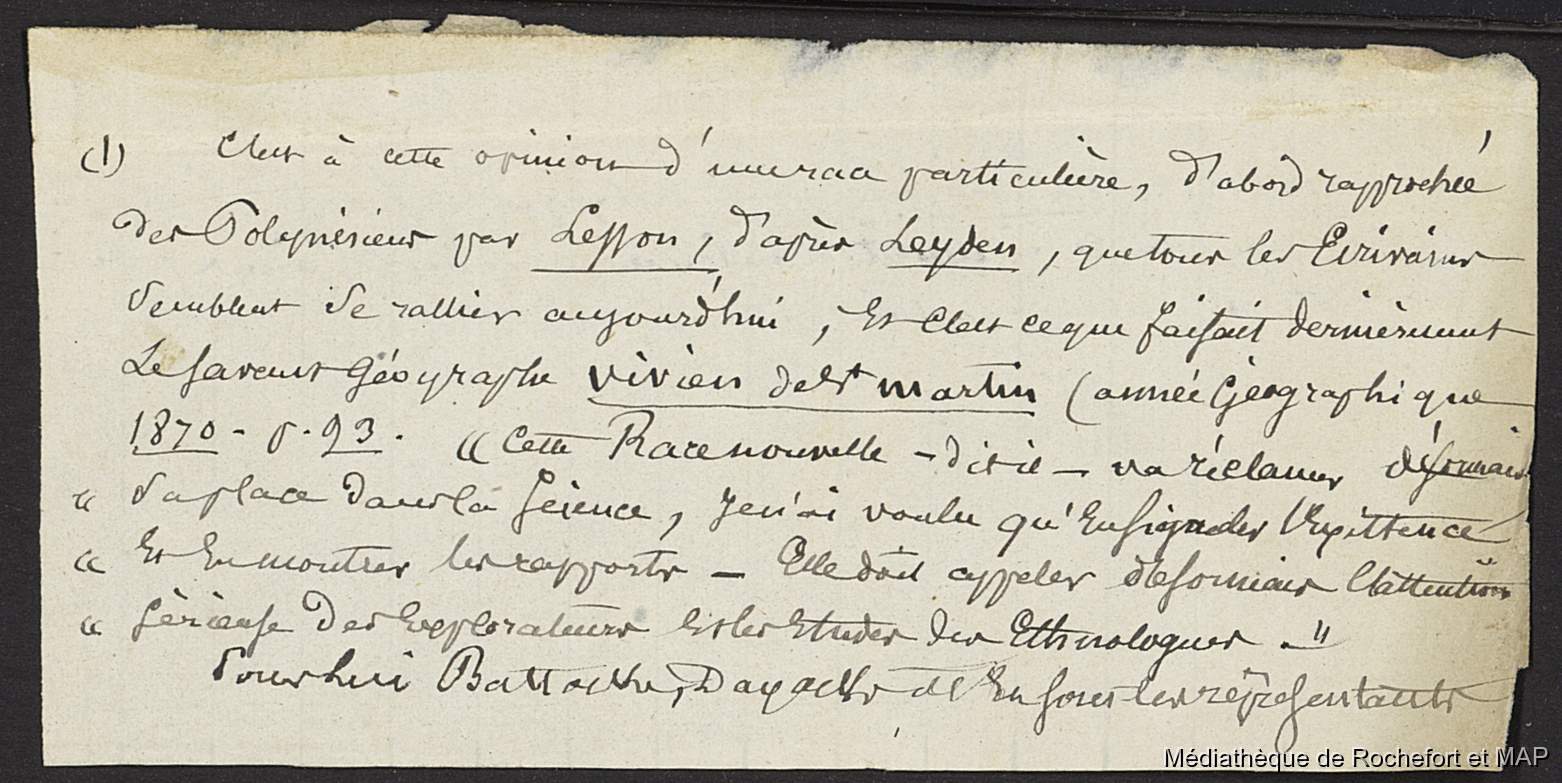 (1) C'est à cette opinion d'une race particulière, d'abord rapprochée
des Polynésiens par Lesson, d'après Leyden, que tous les Ecrivains
semblent se rallier aujourd'hui, et c'est ce que faisait dernièrement
le savant Géographe Vivien de St Martin (année Géographique
1870 - p. 93. « Cette Race nouvelle - dit-il - va réclamer désormais
« sa place dans la science, je n'ai voulu qu'en signaler l'existence
« et en montrer les rapports - Elle doit appeler désormais l'attention
« sérieuse des explorateurs et les études des Ethnologues. - "
Pour lui Battaks, Dayaks en sont les représentants
Médiathèque de Rochefort et MAP